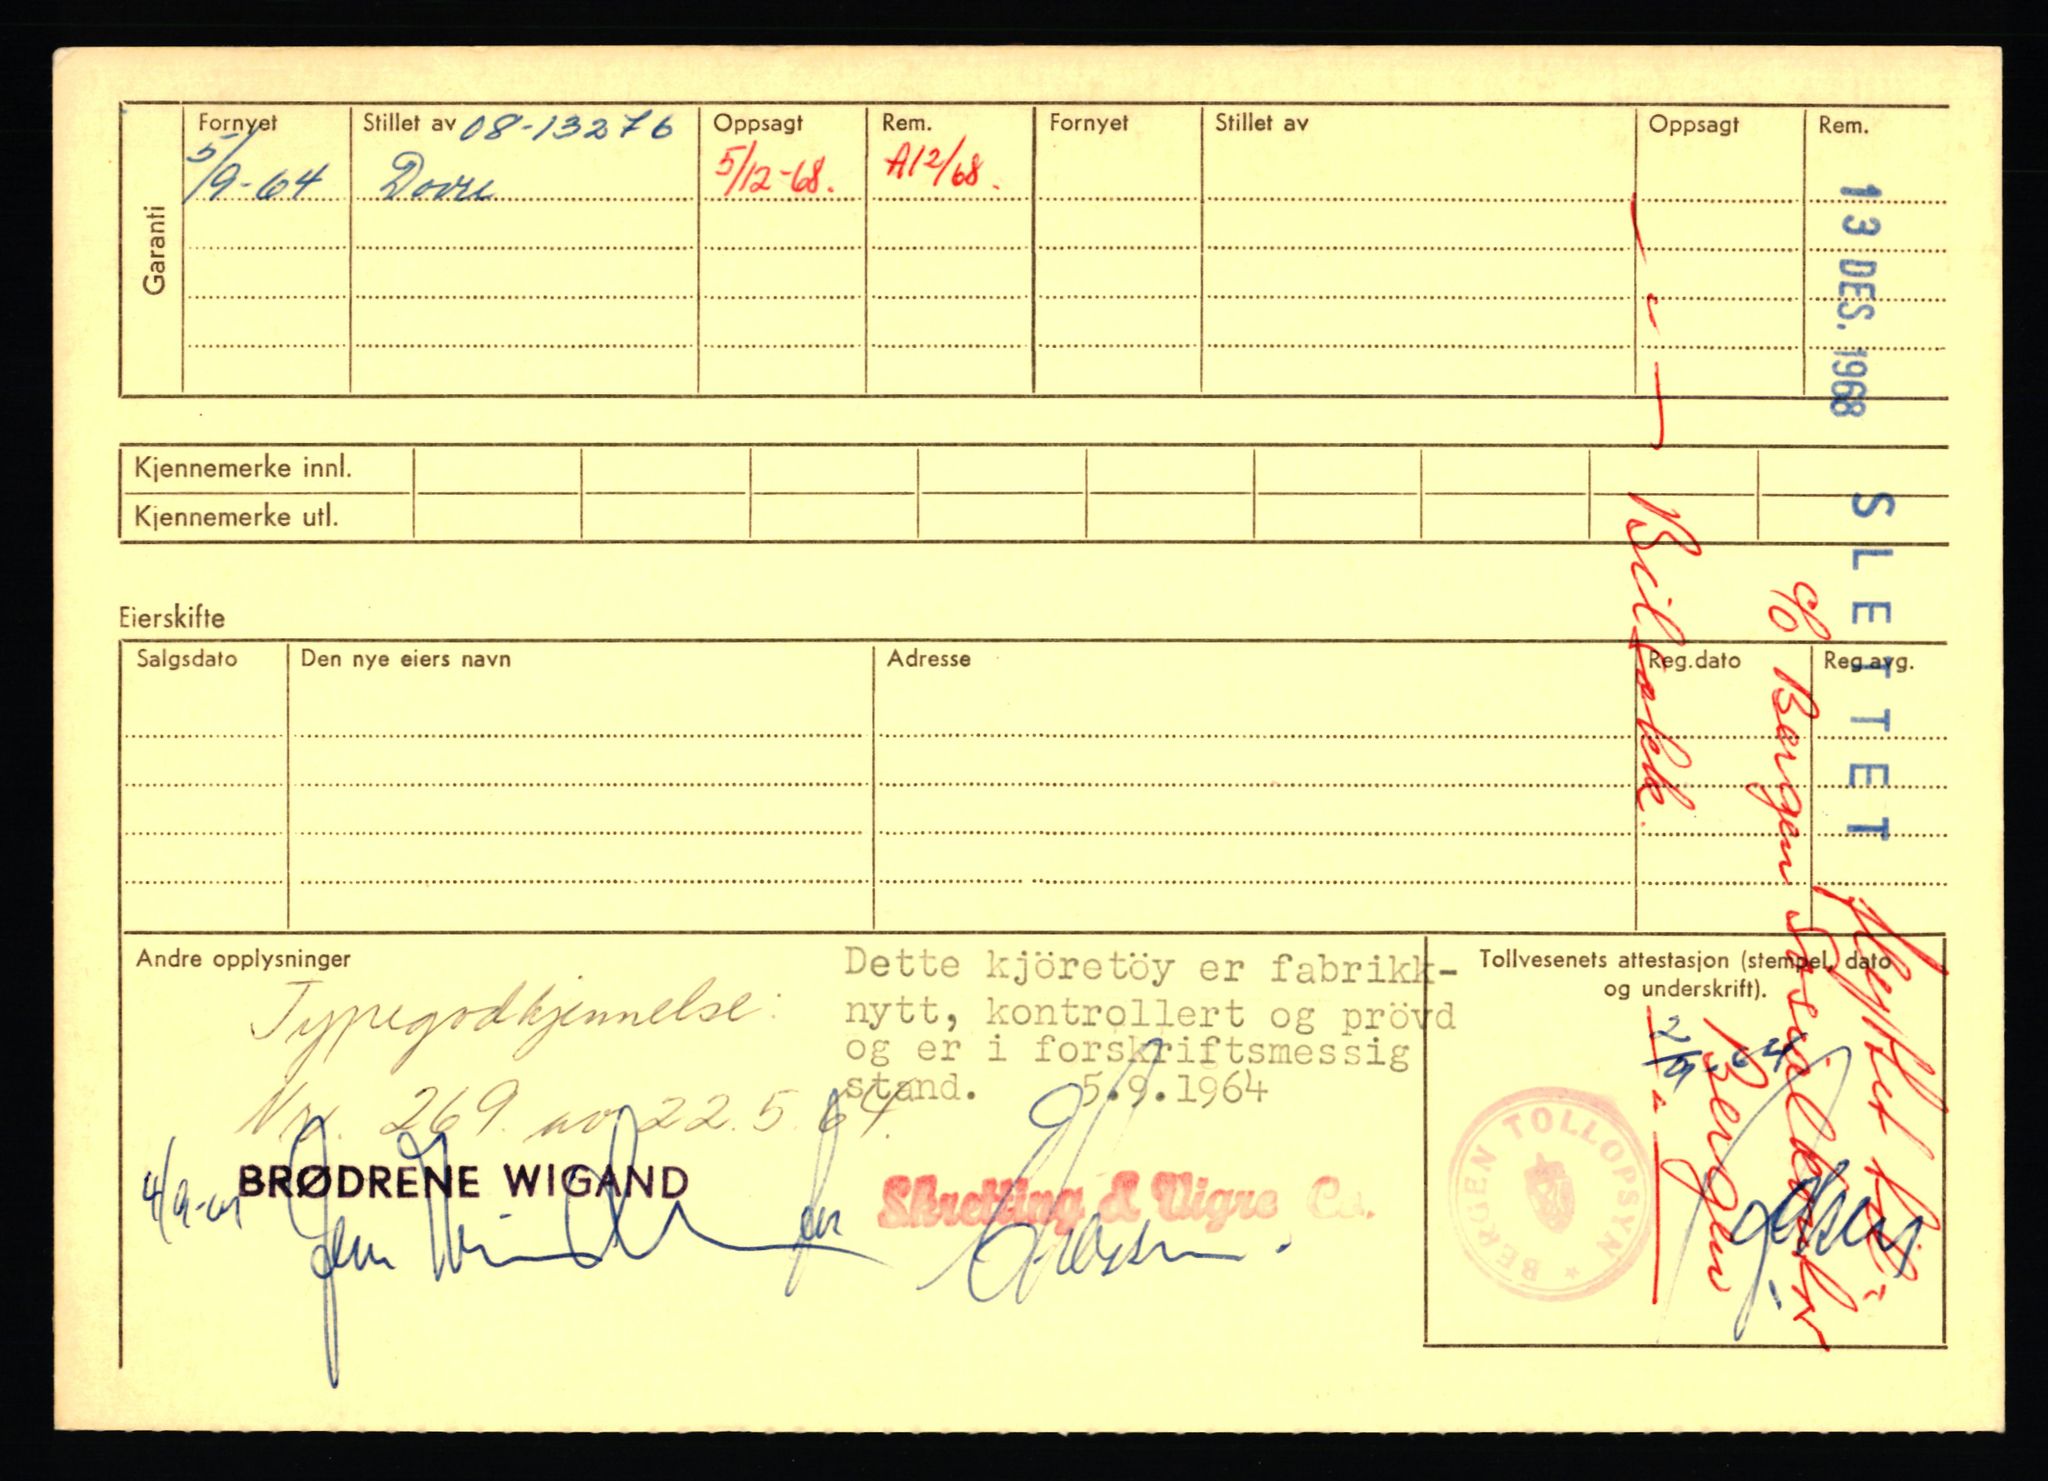 Garanti
Fornyet Stillet av 08-13276 Oppsagt Rem. Fornyet Stillet av Oppsagt Rem.
5/9-64 Dovre 5/12-68. A12/68.
13 DES. 1968
SLETTET
Kjennemerke innl.
Kjennemerke utl.
Eierskifte
Salgsdato Den nye eiers navn Adresse Reg.dato Reg.avg.
Flyttet til
c/o Bergen
Bergen
Bilsakk.
Andre opplysninger
Typegodkjennelse:
Nr. 269 av 22.5.64.
Dette kjöretöy er fabrikk-
nytt, kontrollert og prövd
og er i forskriftsmessig
stand. 5.9.1964
Tollvesenets attestasjon (stempel, dato
og underskrift).
2/9-64
BERGEN TOLLOPSYN
4/9-64 BRØDRENE WIGAND
Skretting & Vigre Co.